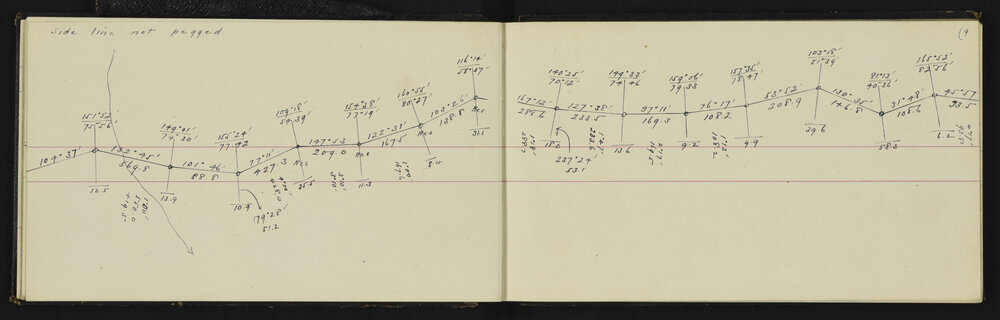 Side line not pegged
(9
104°37'
151°52'
75°56'
12.5
132°45'
569.8
149°01'
74°30'
13.9
101°46'
88.8
155°24'
77°42
10.9
179°28'
51.2
77°11'
427.3
109°18'
54°39'
25.5
147°53
209.0
154°38'
77°19
11.3
122°31'
167.5
160°55'
80°27'
8.4
103°26'
138.8
116°14'
58°07'
31.1
167°12'
287.6
140°25'
70°12
18.0
237°24'
53.1
127°38'
233.5
149°33'
74°46
13.6
97°11'
169.3
159°06'
79°33
9.2
76°17'
108.2
157°35'
78°47'
9.9
53°52'
208.9
103°18'
51°39'
39.6
130°55'
146.8
81°13'
40°36'
58.3
31°48'
108.6
165°52'
82°56'
6.2
45°57
93.5